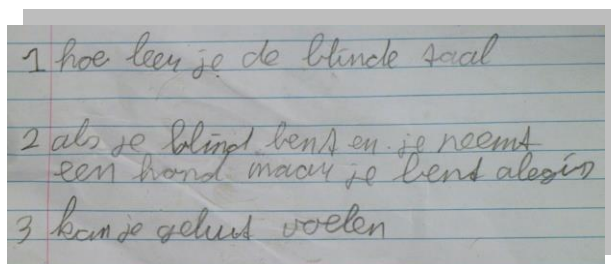 1 hoe leer je de blinde taal
2 als je blind bent en je neemt
een hond maar je bent alegis
3 kan je geluit voelen